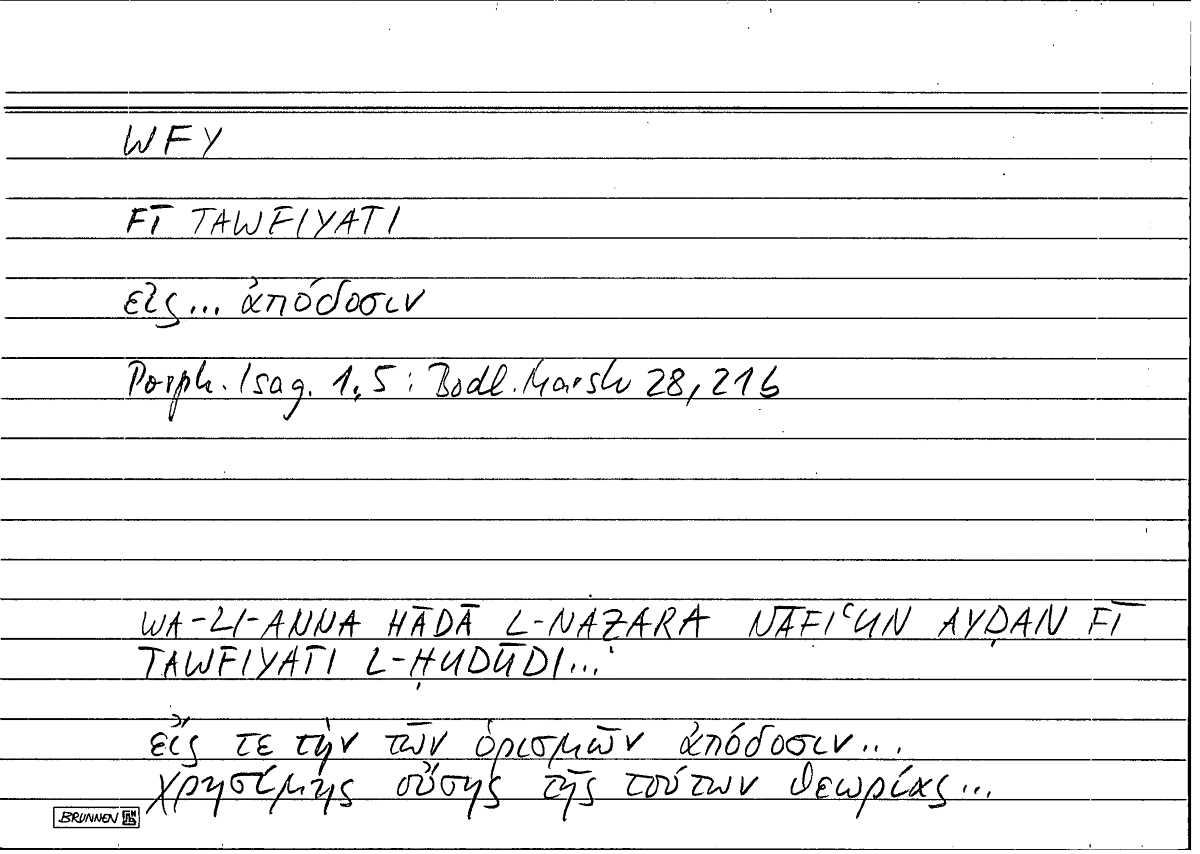 WFY
FĪ TAWFIYATI
εἰς... ἀπόδοσιν
Porph. Isag. 1,5: Bodl. Marsh 28, 21b
WA-LI-ANNA HĀDĀ L-NAẒARA NĀFIʿUN AYḌAN FĪ
TAWFIYATI L-ḤUDŪDI...
εἴς τε τὴν τῶν ὁρισμῶν ἀπόδοσιν...
χρησίμης οὔσης τῆς τούτων θεωρίας...
BRUNNEN